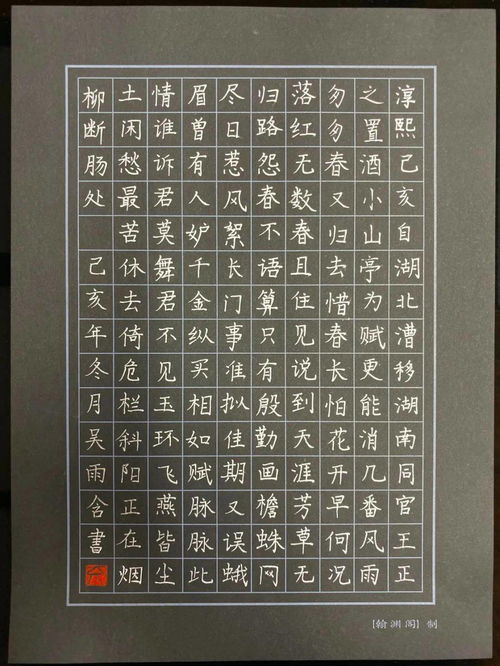 淳熙己亥自湖北漕移湖南同官王正
之置酒小山亭为赋更能消几番风雨
匆匆春又归去惜春长怕花开早何况
落红无数春且住见说到天涯芳草无
归路怨春不语算只有殷勤画檐蛛网
尽日惹风絮长门事准拟佳期又误蛾
眉曾有人妒千金纵买相如赋脉脉此
情谁诉君莫舞君不见玉环飞燕皆尘
土闲愁最苦休去倚危栏斜阳正在烟
柳断肠处 己亥年冬月吴雨含書
[翰渊阁] 制